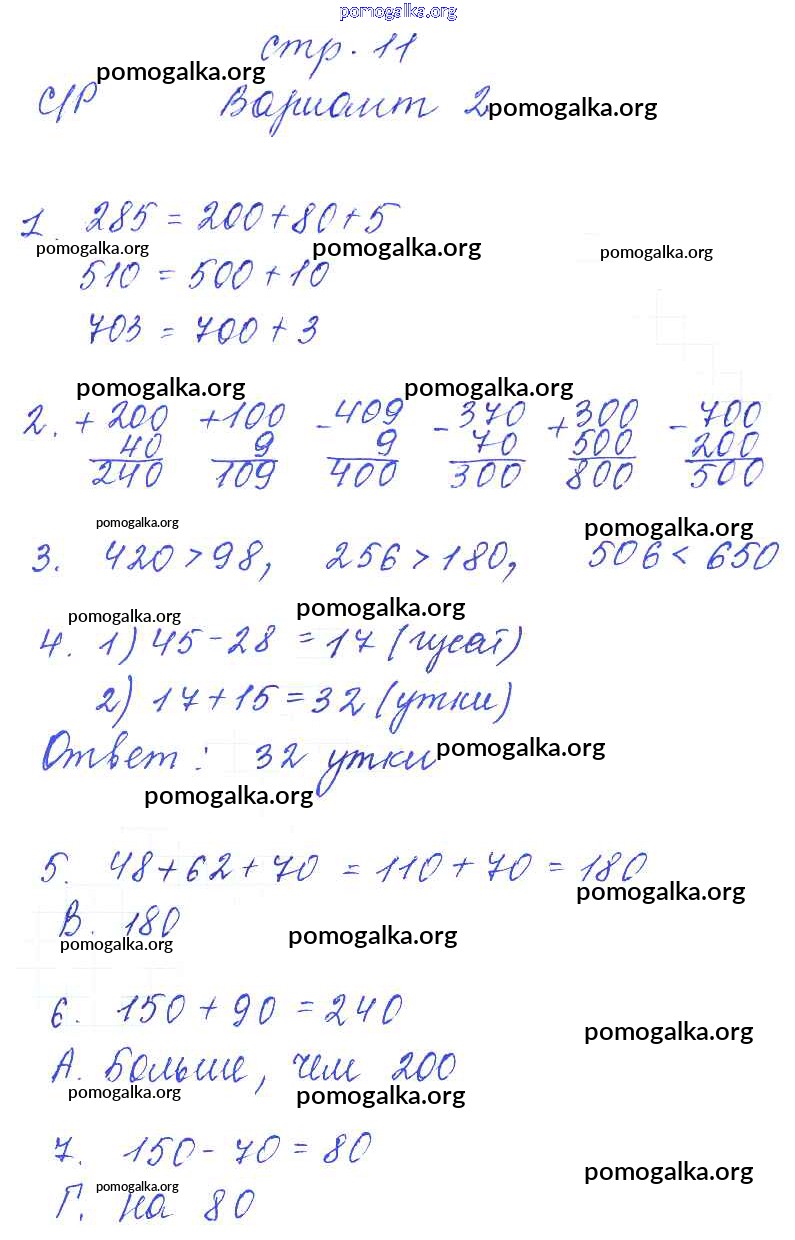 pomogalka.org
стр. 11
pomogalka.org
С/Р Вариант 2 pomogalka.org
1 285 = 200 + 80 + 5
pomogalka.org pomogalka.org pomogalka.org
510 = 500 + 10
703 = 700 + 3
pomogalka.org pomogalka.org
2. + 200 + 100 - 409 - 370 + 300 - 700
40 9 9 70 500 200
240 109 400 300 800 500
pomogalka.org pomogalka.org
3. 420 > 98, 256 > 180, 506 < 650
pomogalka.org pomogalka.org
4. 1) 45 - 28 = 17 (гусят)
2) 17 + 15 = 32 (утки)
Ответ: 32 утки pomogalka.org
pomogalka.org
5. 48 + 62 + 70 = 110 + 70 = 180
pomogalka.org
В. 180
pomogalka.org pomogalka.org
6. 150 + 90 = 240
pomogalka.org
А. Больше, чем 200
pomogalka.org pomogalka.org
7. 150 - 70 = 80
pomogalka.org
pomogalka.org
Г. на 80